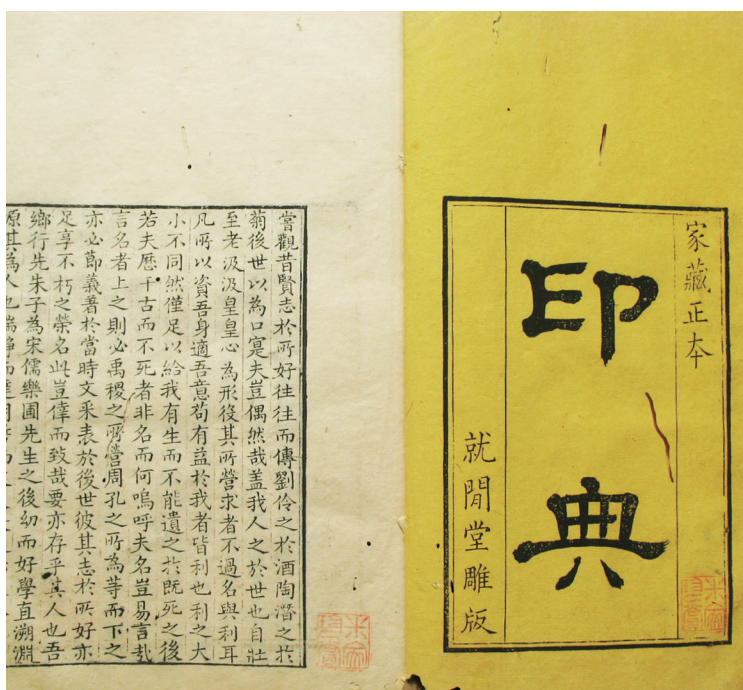 家藏正本
印典
就閒堂雕版
嘗觀昔賢志於所好往往而傳劉伶之於酒陶潛之於
菊後世以為口寔夫豈偶然哉蓋我人之於世也自壯
至老汲汲皇皇心為形役其所營求者不過名與利耳
凡所以資吾身適吾意苟有益於我者皆利也利之大
小不同然僅足以給我有生而不能遺之於既死之後
若夫歷千古而不死者非名而何嗚呼夫名豈易言哉
言名者上之則必禹稷之所營周孔之所為等而下之
亦必節義著於當時文采表於後世彼其志於所好亦
足享不朽之榮名此豈倖而致哉要亦存乎其人也吾
鄉行先朱子為宋儒樂圃先生之後幼而好學直溯淵
源其為人也端靜而